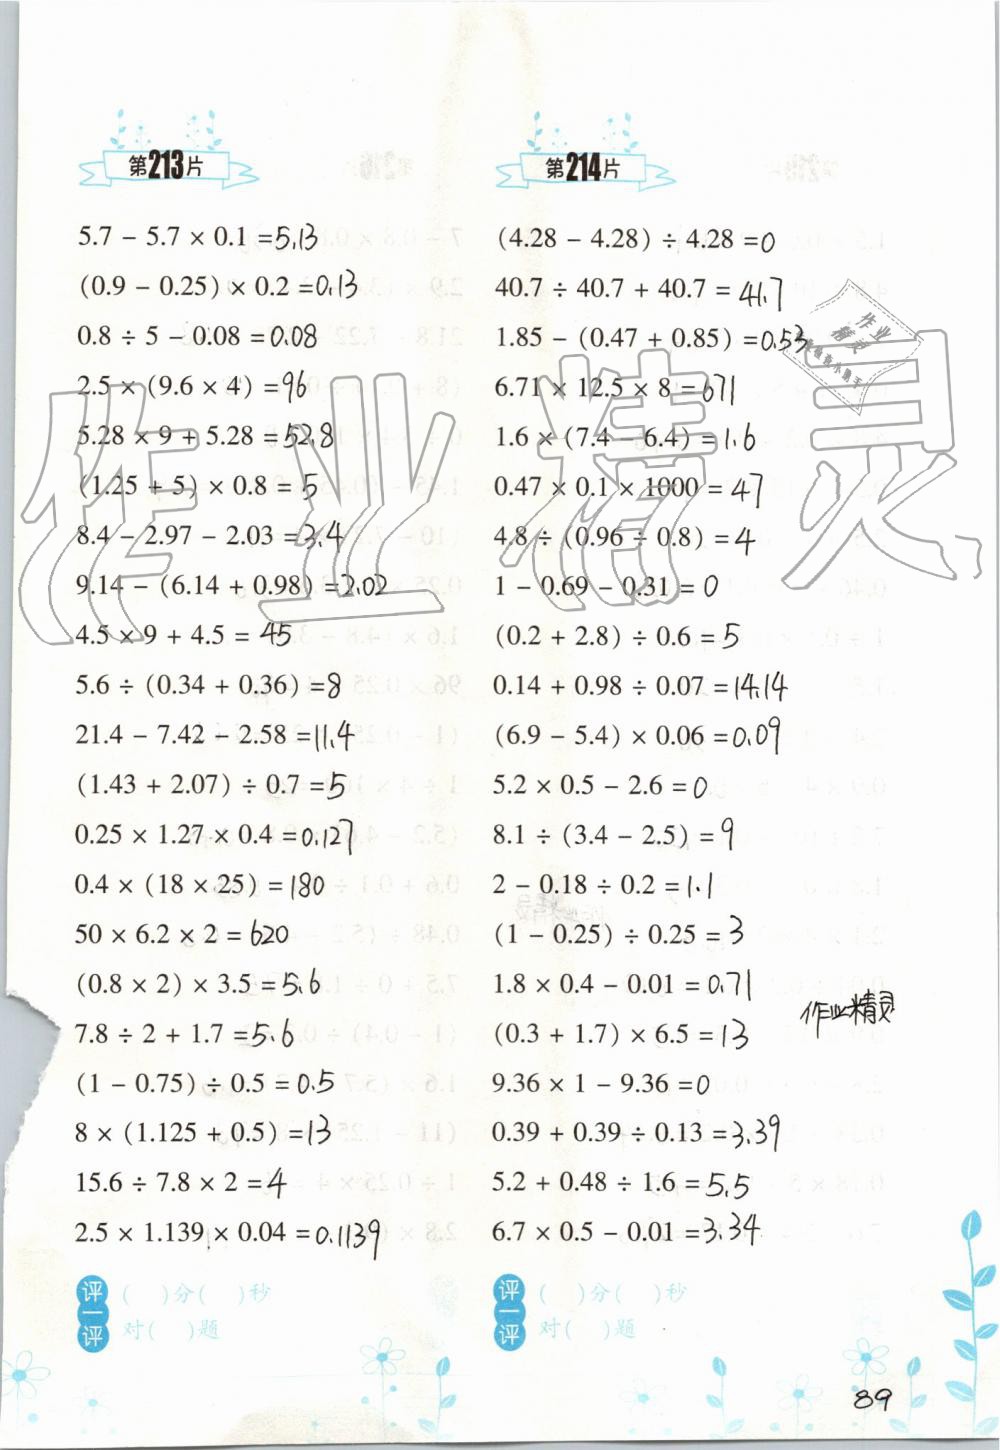 第213片
5.7 − 5.7 × 0.1 = 5.13
(0.9 − 0.25) × 0.2 = 0.13
0.8 ÷ 5 − 0.08 = 0.08
2.5 × (9.6 × 4) = 96
5.28 × 9 + 5.28 = 52.8
(1.25 + 5) × 0.8 = 5
8.4 − 2.97 − 2.03 = 3.4
9.14 − (6.14 + 0.98) = 2.02
4.5 × 9 + 4.5 = 45
5.6 ÷ (0.34 + 0.36) = 8
21.4 − 7.42 − 2.58 = 11.4
(1.43 + 2.07) ÷ 0.7 = 5
0.25 × 1.27 × 0.4 = 0.127
0.4 × (18 × 25) = 180
50 × 6.2 × 2 = 620
(0.8 × 2) × 3.5 = 5.6
7.8 ÷ 2 + 1.7 = 5.6
(1 − 0.75) ÷ 0.5 = 0.5
8 × (1.125 + 0.5) = 13
15.6 ÷ 7.8 × 2 = 4
2.5 × 1.139 × 0.04 = 0.1139
评一评
( )分( )秒
对( )题
第214片
(4.28 − 4.28) ÷ 4.28 = 0
40.7 ÷ 40.7 + 40.7 = 41.7
1.85 − (0.47 + 0.85) = 0.53
6.71 × 12.5 × 8 = 671
1.6 × (7.4 − 6.4) = 1.6
0.47 × 0.1 × 1000 = 47
4.8 ÷ (0.96 ÷ 0.8) = 4
1 − 0.69 − 0.31 = 0
(0.2 + 2.8) ÷ 0.6 = 5
0.14 + 0.98 ÷ 0.07 = 14.14
(6.9 − 5.4) × 0.06 = 0.09
5.2 × 0.5 − 2.6 = 0
8.1 ÷ (3.4 − 2.5) = 9
2 − 0.18 ÷ 0.2 = 1.1
(1 − 0.25) ÷ 0.25 = 3
1.8 × 0.4 − 0.01 = 0.71
(0.3 + 1.7) × 6.5 = 13
9.36 × 1 − 9.36 = 0
0.39 + 0.39 ÷ 0.13 = 3.39
5.2 + 0.48 ÷ 1.6 = 5.5
6.7 × 0.5 − 0.01 = 3.34
评一评
( )分( )秒
对( )题
作业精灵
作业精灵
作业
精灵
89